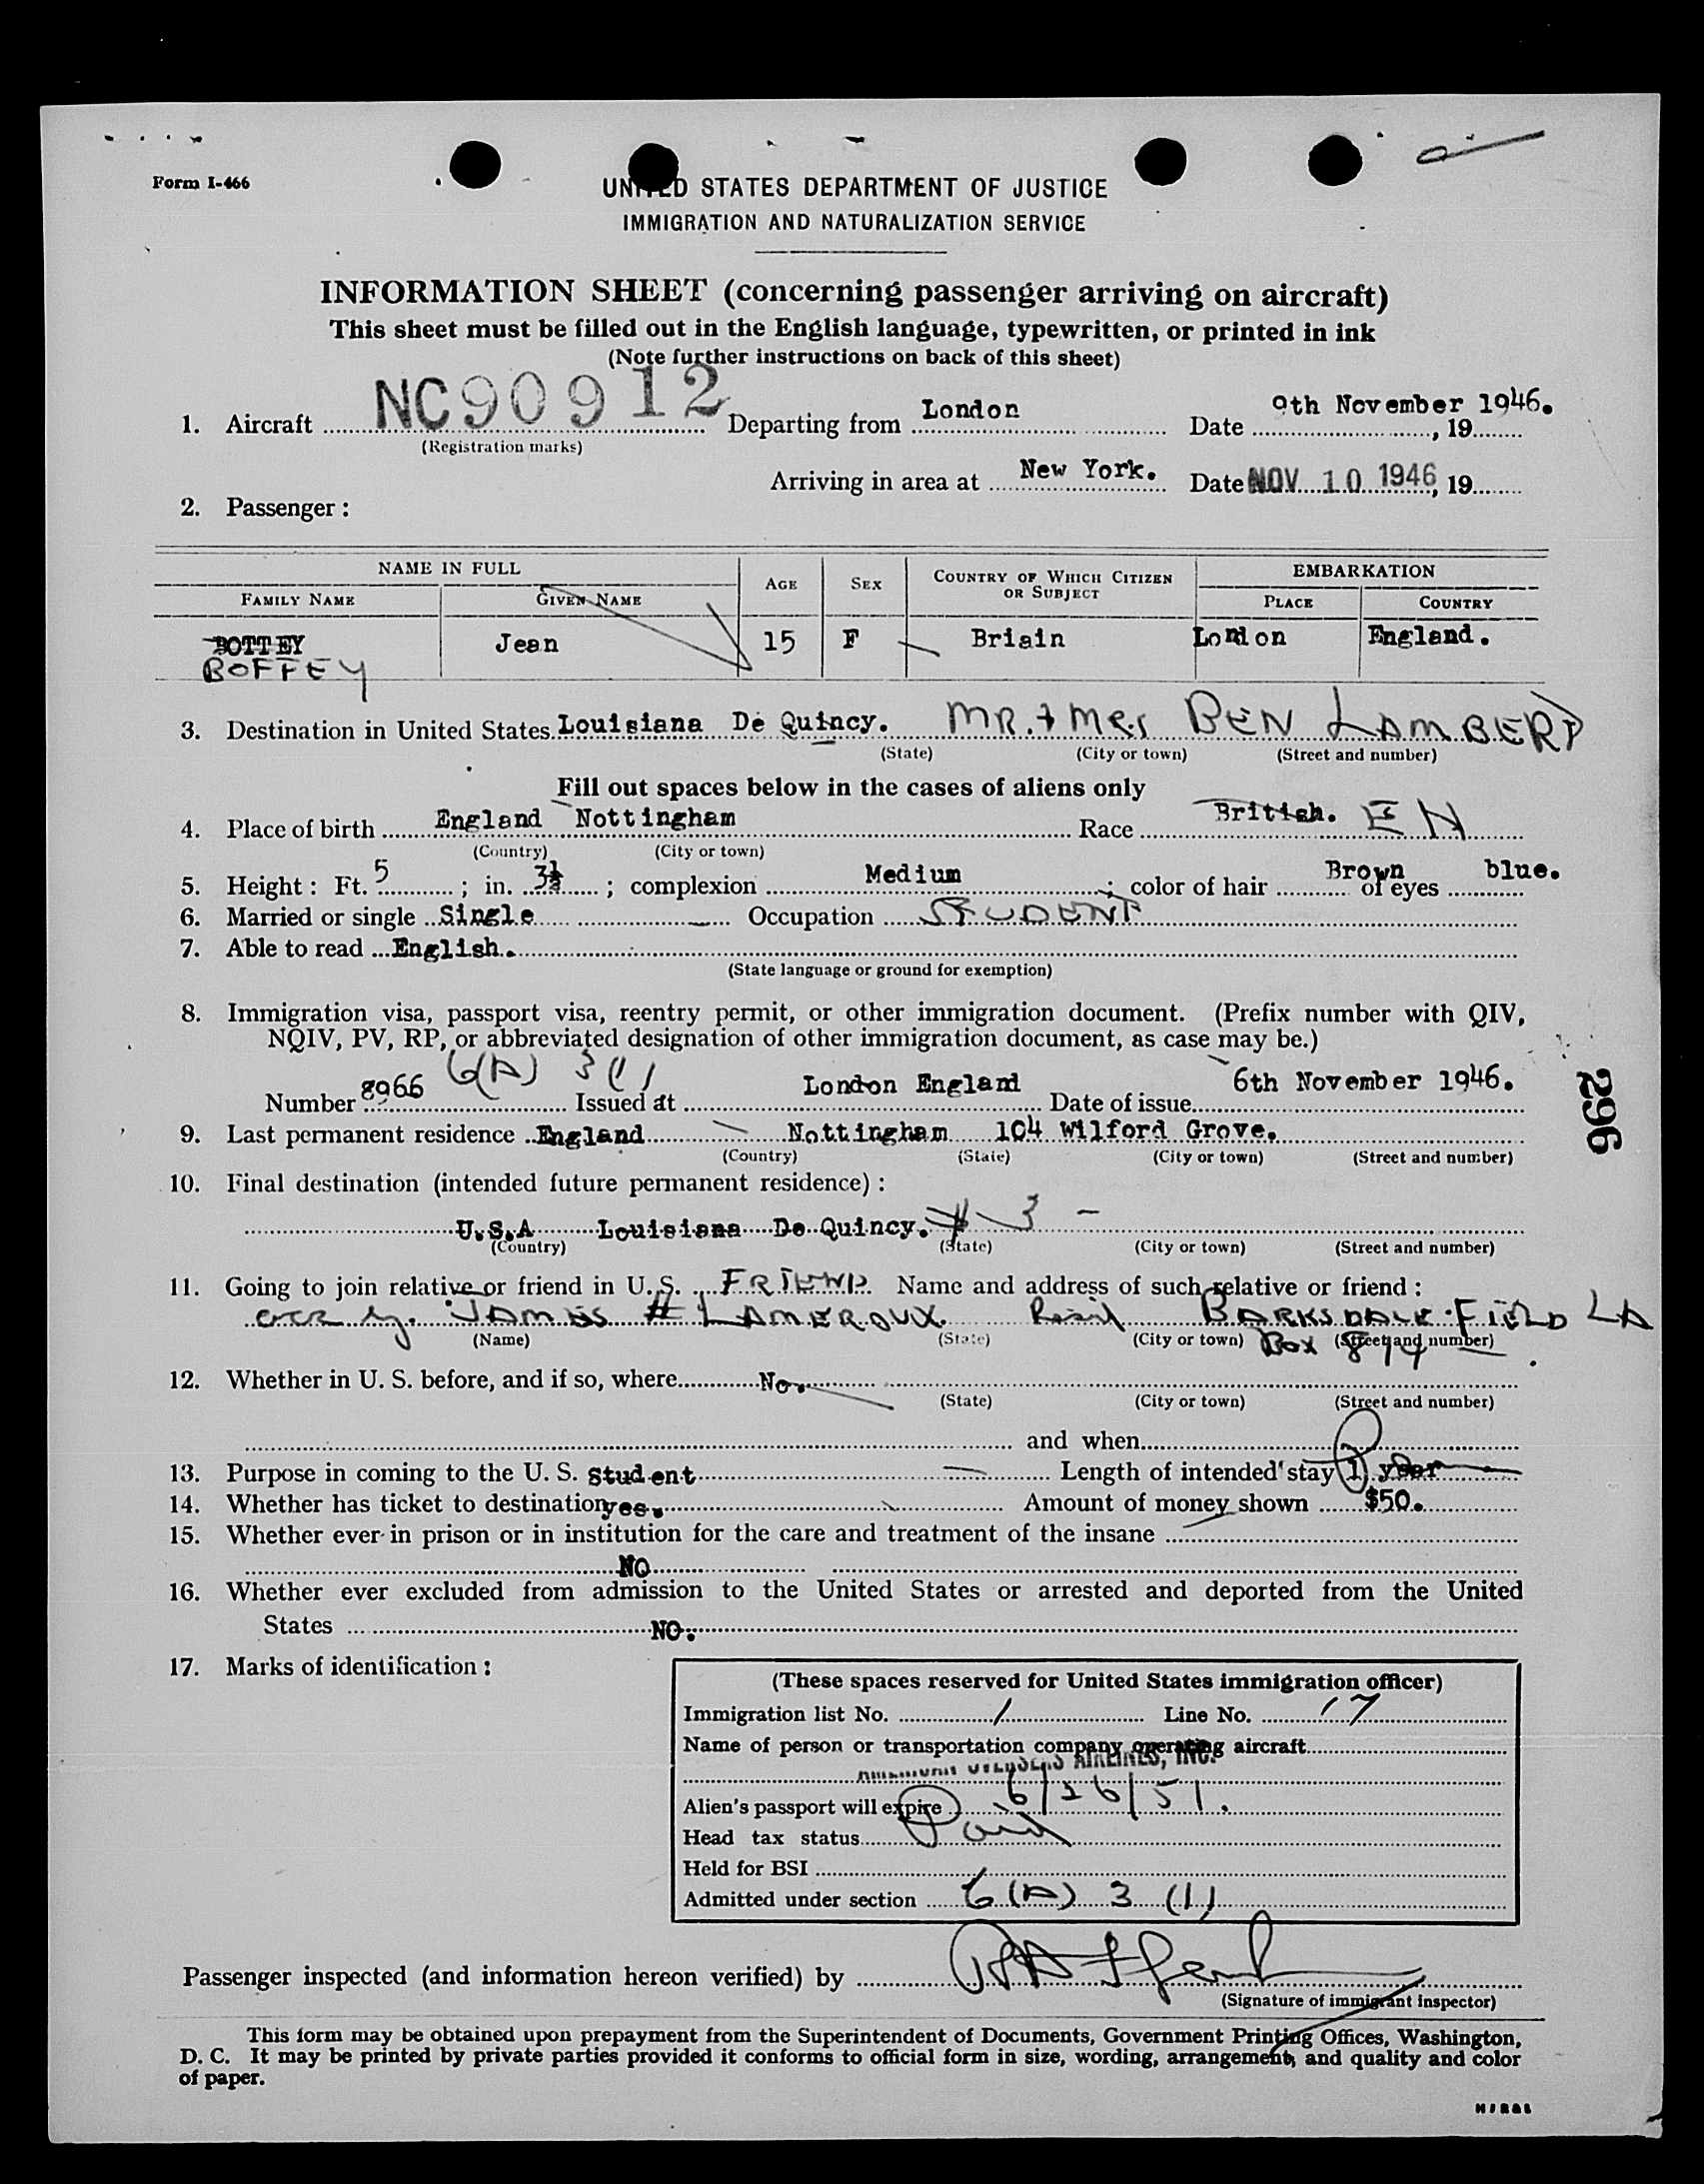 Form I-466
UNITED STATES DEPARTMENT OF JUSTICE
IMMIGRATION AND NATURALIZATION SERVICE
INFORMATION SHEET (concerning passenger arriving on aircraft)
This sheet must be filled out in the English language, typewritten, or printed in ink
(Note further instructions on back of this sheet)
1. Aircraft NC90912 Departing from London Date 9th November 1946. , 19
(Registration marks)
Arriving in area at New York. Date NOV 10 1946, 19
2. Passenger :
NAME IN FULL AGE SEX COUNTRY OF WHICH CITIZEN OR SUBJECT EMBARKATION
FAMILY NAME GIVEN NAME PLACE COUNTRY
BOTTEY Jean 15 F Briain London England.
BOFFEY
3. Destination in United States Louisiana De Quincy. MR. + MRS BEN LAMBERT
(State) (City or town) (Street and number)
Fill out spaces below in the cases of aliens only
4. Place of birth England Nottingham Race British. EN
(Country) (City or town)
5. Height : Ft. 5 ; in. 3½ ; complexion Medium ; color of hair Brown of eyes blue.
6. Married or single Single Occupation STUDENT
7. Able to read English.
(State language or ground for exemption)
8. Immigration visa, passport visa, reentry permit, or other immigration document. (Prefix number with QIV,
NQIV, PV, RP, or abbreviated designation of other immigration document, as case may be.)
6(A) 3(1)
Number 8966 Issued at London England Date of issue 6th November 1946.
296
9. Last permanent residence England Nottingham 104 Wilford Grove.
(Country) (State) (City or town) (Street and number)
10. Final destination (intended future permanent residence) :
U.S.A Louisiana De Quincy. # 3 -
(Country) (State) (City or town) (Street and number)
11. Going to join relative or friend in U. S. FRIEND Name and address of such relative or friend :
JAMES H LAMEROUX BARKSDALE FIELD LA
(Name) (State) (City or town) (Street and number)
Box 894
12. Whether in U. S. before, and if so, where No.
(State) (City or town) (Street and number)
and when
13. Purpose in coming to the U. S. Student Length of intended stay 1 year
14. Whether has ticket to destination yes. Amount of money shown $50.
15. Whether ever in prison or in institution for the care and treatment of the insane
NO
16. Whether ever excluded from admission to the United States or arrested and deported from the United
States NO.
17. Marks of identification :
(These spaces reserved for United States immigration officer)
Immigration list No. 1 Line No. 17
Name of person or transportation company operating aircraft
OVERSEAS AIRLINES, INC.
Alien's passport will expire 6/26/51.
Head tax status Paid
Held for BSI
Admitted under section 6(A) 3 (1)
Passenger inspected (and information hereon verified) by
(Signature of immigrant inspector)
This form may be obtained upon prepayment from the Superintendent of Documents, Government Printing Offices, Washington,
D. C. It may be printed by private parties provided it conforms to official form in size, wording, arrangement, and quality and color
of paper.